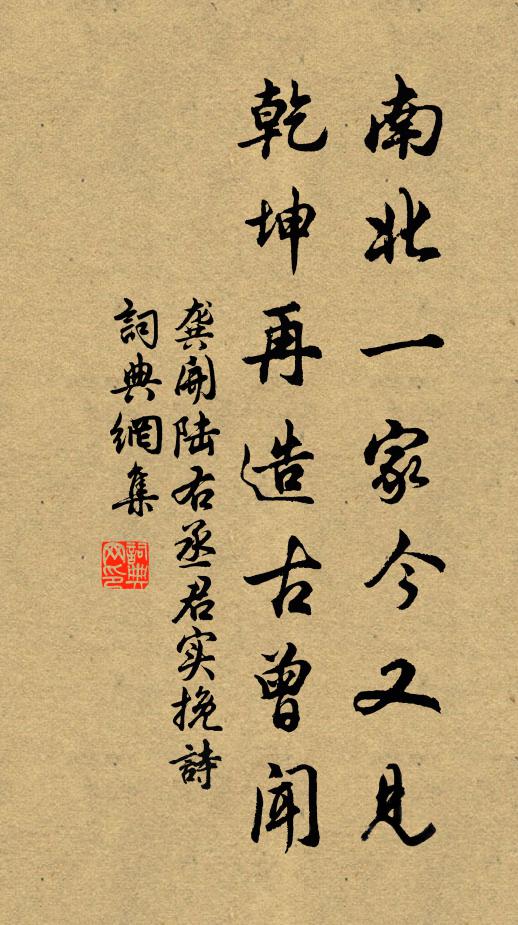 南北一家今又見
乾坤再造古曾聞
龔開陆右丞君实挽詩
詞典網集
詞典网印